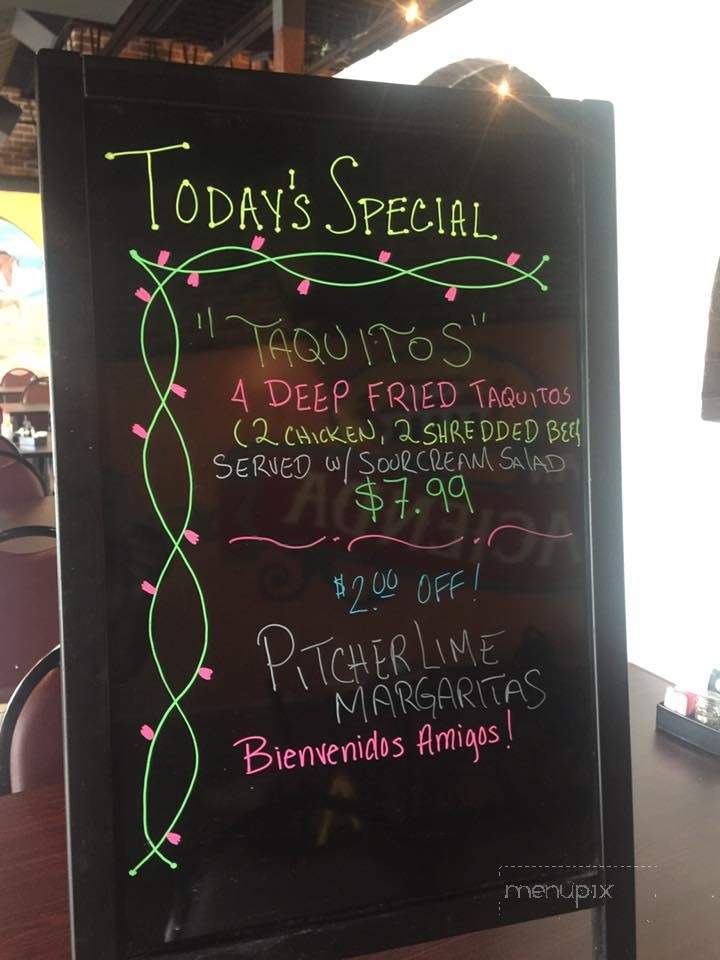 TODAY'S SPECIAL
"TAQUITOS"
4 DEEP FRIED TAQUITOS
(2 CHICKEN, 2 SHREDDED BEEF
SERVED W/ SOURCREAM SALAD
$7.99
$2.00 OFF!
PITCHER LIME
MARGARITAS
Bienvenidos Amigos!
menupix